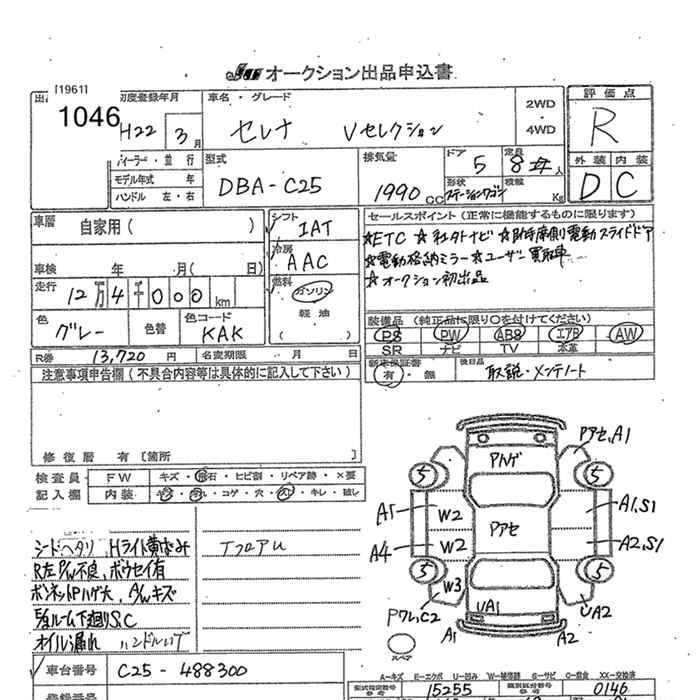 JUS オークション出品申込書
[1961]
1046
初度登録年月 車名・グレード 2WD 4WD 評価点
H22 3月 セレナ Vセレクション R
ディーラー・並行 型式 排気量 ドア 定員 外装 内装
モデル年式 年 DBA-C25 1990cc 5 8 人 D C
ハンドル 左・右 形状 ステーションワゴン 積載 Kg
車歴 自家用( ) シフト IAT セールスポイント(正常に機能するものに限ります)
冷房 AAC ☆ETC ☆社外ナビ ☆助手席側電動スライドドア
車検 年 月(日) ☆電動格納ミラー ☆ユーザー買取車
走行 12万4千000km 燃料 ガソリン 軽油 ☆オークション初出品
色 グレー 色替 色コード KAK 装備品(純正品に限り○を付けてください)
PS PW ABS エアB AW
SR ナビ TV 本革
R券 13,720円 名変期限 月 日 新車保証書 有・無 後日品 取説・メンテノート
注意事項申告欄(不具合内容等は具体的に記入して下さい)
修復歴 有〔箇所 〕
検査員記入欄 FW キズ・飛石・ヒビ割・リペア跡・×要
内装 キズ・汚れ・コゲ・穴・スレ・キレ・破レ
シートヘタリ、Hライト黄ばみ TフロアU
R左P/W不良、ボウセイ有
ボンネットPハゲ大、AWキズ
下廻りS.C
オイル漏れ
Pハゲ
Pアセ
Pアセ,A1
5
5
5
5
A1
A4
W2
W2
W3
A1,S1
A2,S1
Pワレ,C2
UA1
UA2
A1
A2
スペア
車台番号 C25-488300
A-キズ E-エクボ U-凹み W-補修跡 S-サビ C-腐食 XX-交換済
型式指定番号 15255 類別区分番号 0146